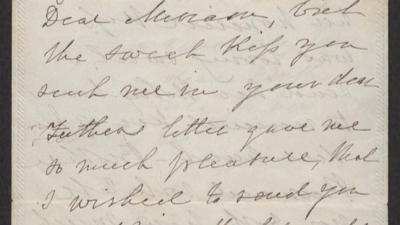 Dear Miriam, that
the sweet kiss you
sent me in your dear
Fathers letter gave me
so much pleasure, that
I wished to send you